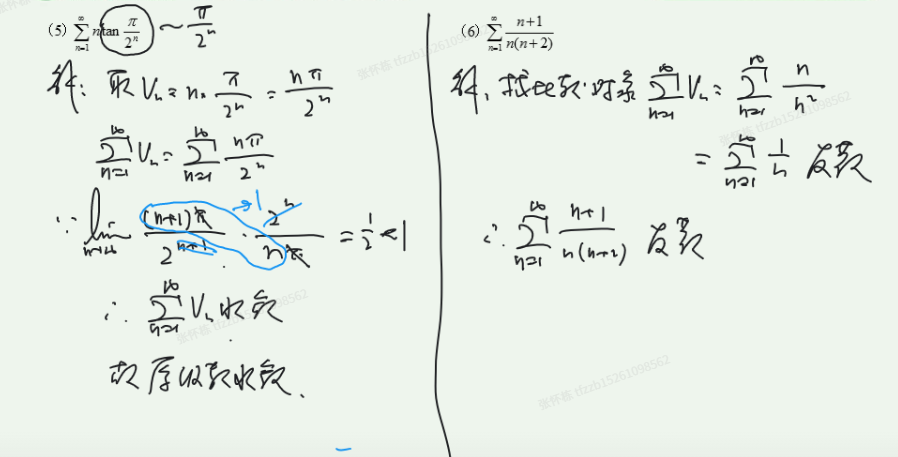 (5) ∑_{n=1}^{∞} n tan π/2^n ~ π/2^n
解: 取 V_n = n · π/2^n = nπ/2^n
∑_{n=1}^{∞} V_n = ∑_{n=1}^{∞} nπ/2^n
∵ lim_{n→∞} (n+1)π/2^{n+1} · 2^n/nπ = 1/2 < 1
→1
∴ ∑_{n=1}^{∞} V_n 收敛
故原级数收敛.
(6) ∑_{n=1}^{∞} (n+1)/(n(n+2))
解: 找比较对象 ∑_{n=1}^{∞} V_n = ∑_{n=1}^{∞} n/n^2
= ∑_{n=1}^{∞} 1/n 发散
∴ ∑_{n=1}^{∞} (n+1)/(n(n+2)) 发散
张怀栋 tfzzb15261098562